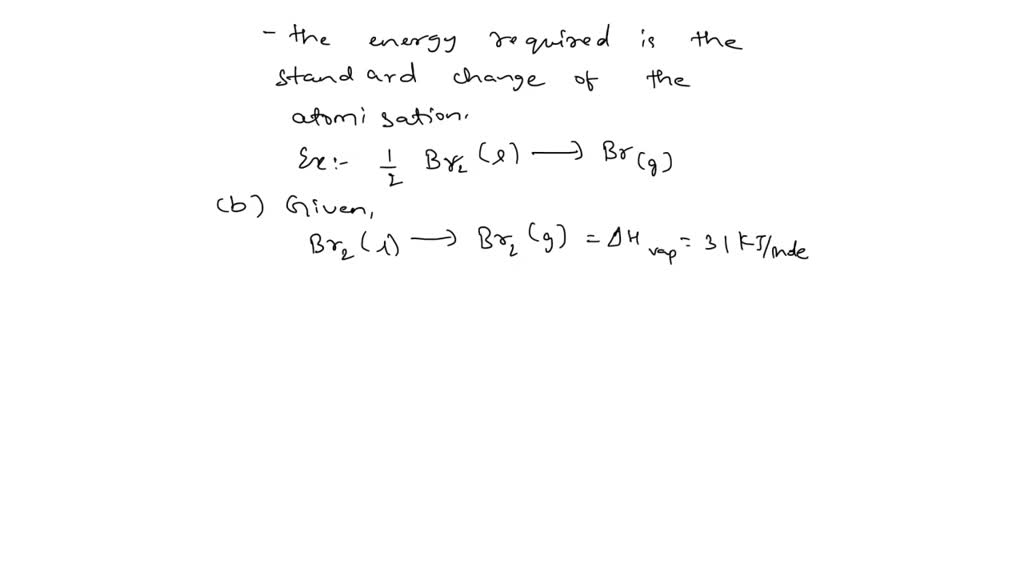 - the energy required is the
standard change of the
atomisation.
Ex:- 1/2 Br₂ (l) ⟶ Br(g)
(b) Given,
Br₂ (l) ⟶ Br₂ (g) = ΔH vap = 31 KJ/mole